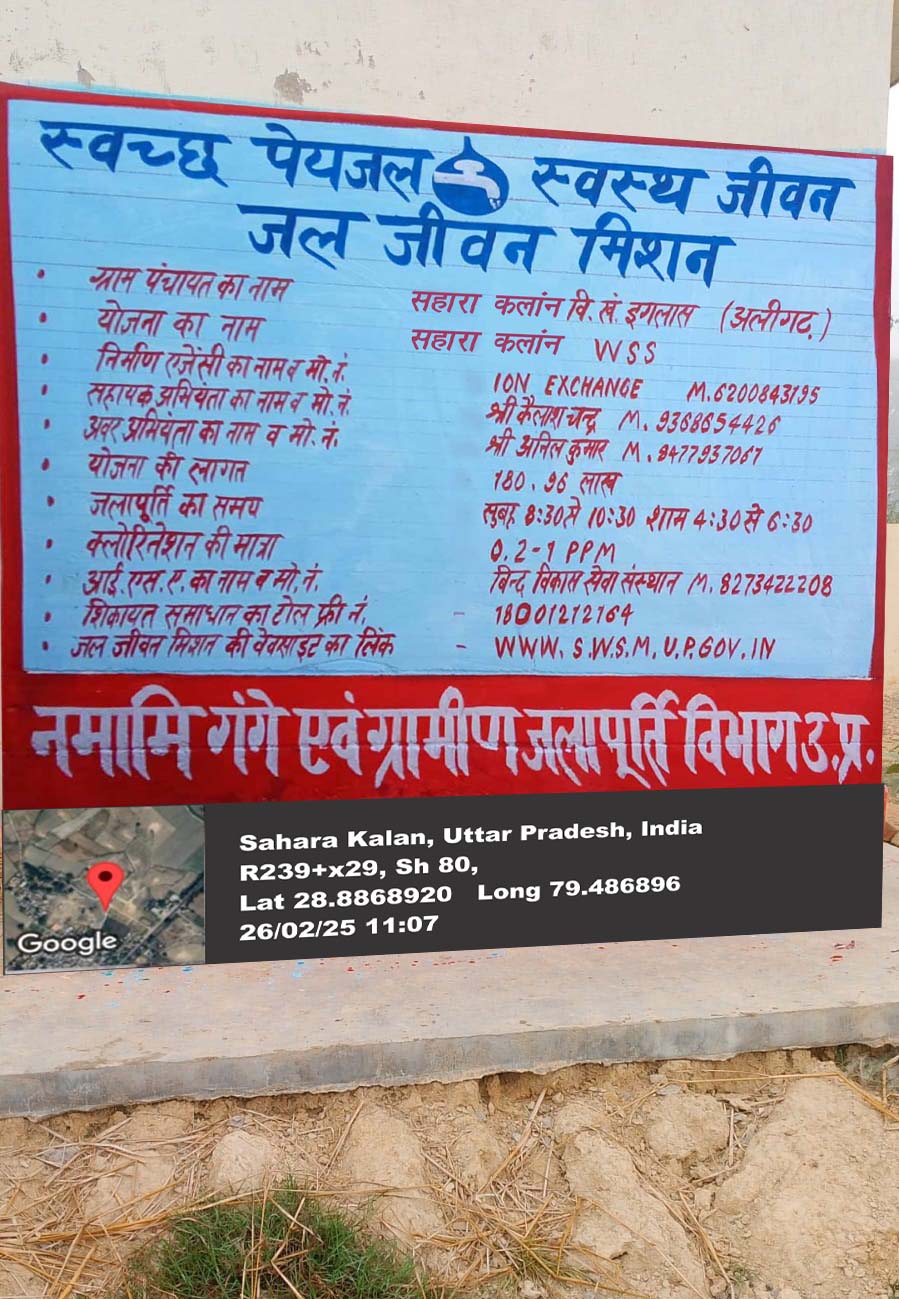 स्वच्छ पेयजल स्वस्थ जीवन
जल जीवन मिशन
• ग्राम पंचायत का नाम सहारा कलांन वि. खं. इगलास (अलीगढ़)
• योजना का नाम सहारा कलांन WSS
• निर्माण एजेंसी का नाम व मो. नं. ION EXCHANGE M. 6200843195
• सहायक अभियंता का नाम व मो. नं. श्री कैलाश चन्द्र M. 9368654426
• अवर अभियंता का नाम व मो. नं. श्री अनिल कुमार M. 8477937067
• योजना की लागत 180.96 लाख
• जलापूर्ति का समय सुबह 8:30 से 10:30 शाम 4:30 से 6:30
• क्लोरिनेशन की मात्रा 0.2-1 PPM
• आई. एस. ए. का नाम व मो. नं. बिन्द विकास सेवा संस्थान M. 8273422208
• शिकायत समाधान का टोल फ्री नं. - 18001212164
• जल जीवन मिशन की वेबसाइट का लिंक - WWW. S.W.S.M. U.P.GOV.IN
नमामि गंगे एवं ग्रामीण जलापूर्ति विभाग उ.प्र.
Google
Sahara Kalan, Uttar Pradesh, India
R239+x29, Sh 80,
Lat 28.8868920 Long 79.486896
26/02/25 11:07